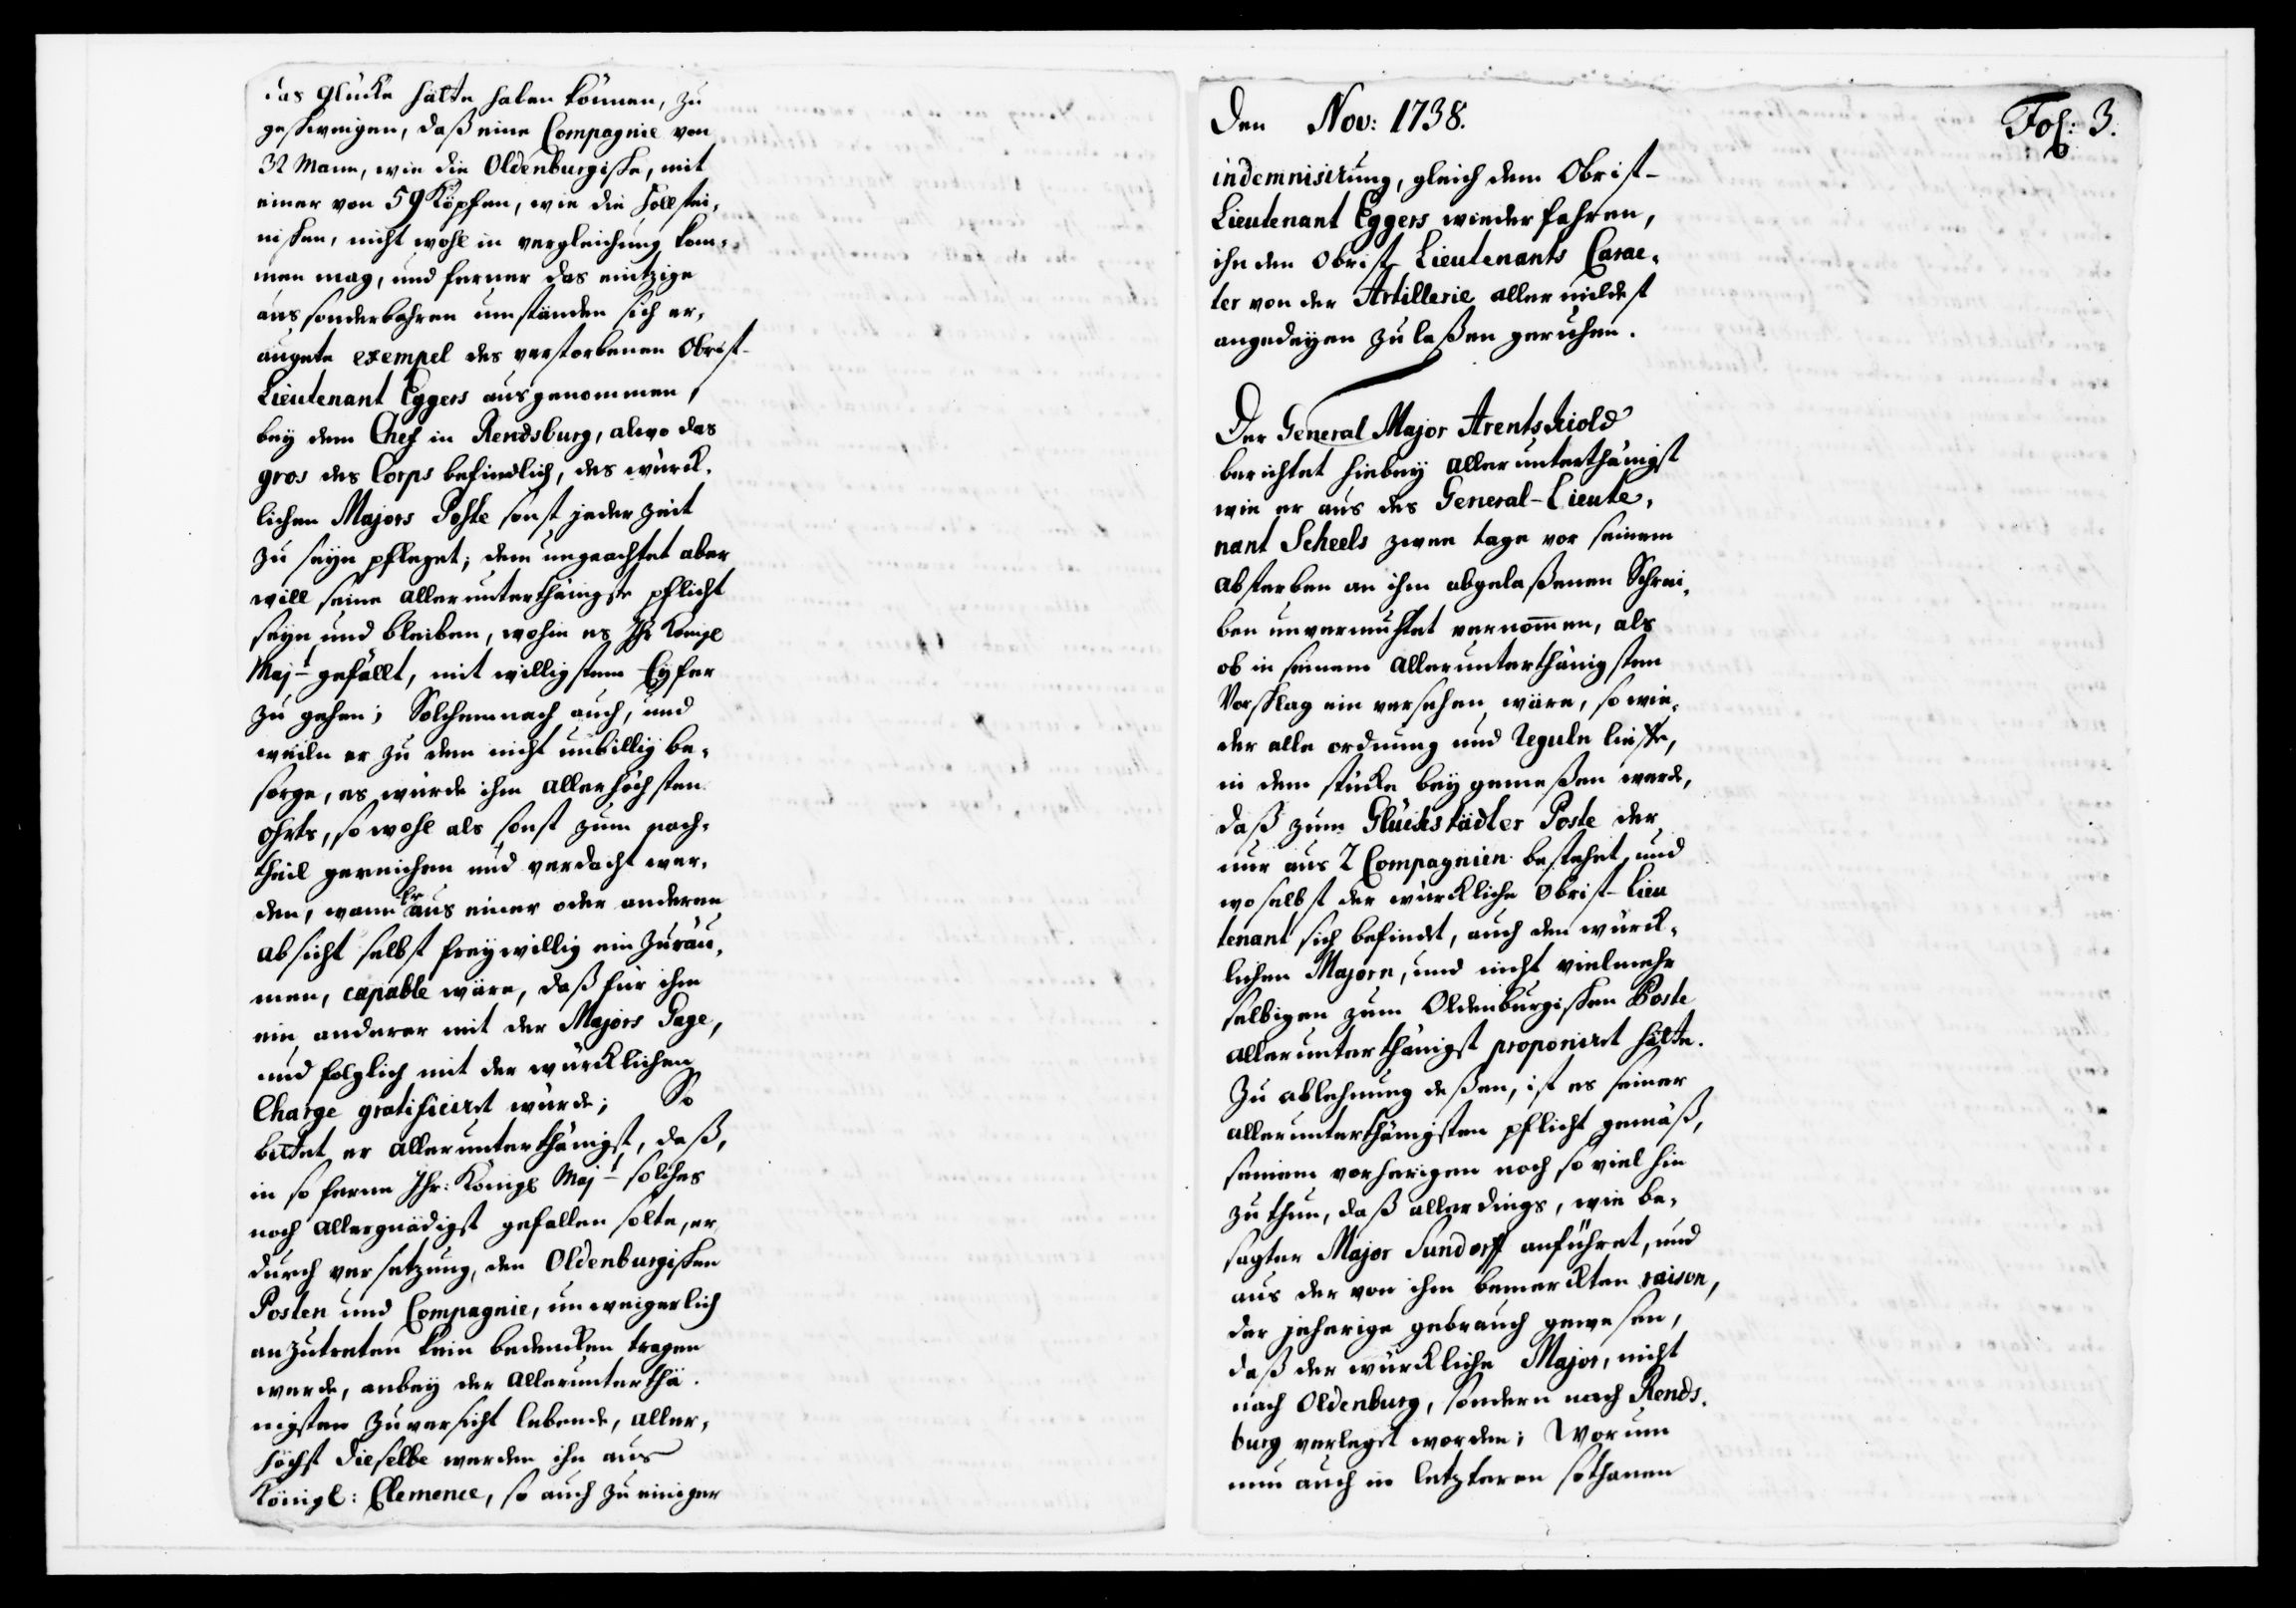 das Glücke hätte haben können, zu
geschweigen, daß eine Compagnie von
32 Mann, wie die Oldenburgische, mit
einer von 59 Köpfen, wie die Hollstei,
nischen, nicht wohl in vergleichung kom,
men mag, und ferner das eintzige
aus sonderbahren umständen sich er,
äugete exempel des verstorbenen Obrist-
Lieutenant Eggers ausgenommen,
bey dem Chef in Rendsburg, alwo das
gros des Corps befindlich, des würck,
lichen Majors Poste sonst jederzeit
zu seyn pfleget; dem ungeachtet aber
will seine allerunterthänigste pflicht
seyn und bleiben, wohin es Ihr Königl
Majt gefällt, mit willigstem Eyfer
zu gehen; Solchemnach auch, und
weiln er zu dem nicht unbillig be,
sorge, es würde ihm allerhöchsten
ohrts, so wohl als sonst zum nach,
theil gereichen und verdacht wer,
den, wann Er aus einer oder anderen
absicht selbst freywillig einzuräu,
men, capable wäre, daß für ihm
ein anderer mit der Majors Gage,
und folglich mit der würcklichen
Charge gratificiret würde; So
bittet er allerunterthänigst, daß,
in so ferne Ihr: Königl Majt solches
noch allergnädigst gefallen solte, er
durch versetzung, den Oldenburgischen
Posten und Compagnie, unweigerlich
anzutreten kein bedencken tragen
werde, anbey der allerunterthä,
nigsten zuversicht lebende, aller,
höchst dieselbe werden ihn aus
Königl: Clemence, so auch zu einiger
Den Nov: 1738.
Fol: 3.
indemnisirung, gleich dem Obrist-
Lieutenant Eggers wiederfahren,
ihn den Obrist Lieutenants Carac,
ter von der Artillerie allermildest
angedeyen zu laßen geruhen.
Der General Major Arentskiold
berichtet hiebey allerunterthänigst
wie er aus des General-Lieute,
nant Scheels zwen tage vor seinem
absterben an ihm abgelaßenen Schrei,
ben unvermuhtet vernommen, als
ob in seinem allerunterthänigsten
Vorschlag ein versehen wäre, so wie,
der alle ordnung und Reguln lieffe,
in dem stücke beygemeßen werde,
daß zum Glückstädter Poste der
nur aus 2 Compagnien bestehet, und
woselbst der würckliche Obrist-Lieu
tenant sich befindet, auch den würck,
lichen Majorn, und nicht vielmehr
selbigen zum Oldenburgischen Poste
allerunterthänigst proponiret hätte.
Zu ablehnung deßen, ist es seiner
allerunterthänigsten pflicht gemäß,
seinem vorherigen noch so viel hin
zu thun, daß allerdings, wie be,
sagter Major Sundorff anführet, und
aus der von ihm bemerckten raison,
der jeherige gebrauch gewesen,
daß der würckliche Major, nicht
nach Oldenburg, sondern nach Rends,
burg verleget worden; Worum
nun auch in letzteren sothanen